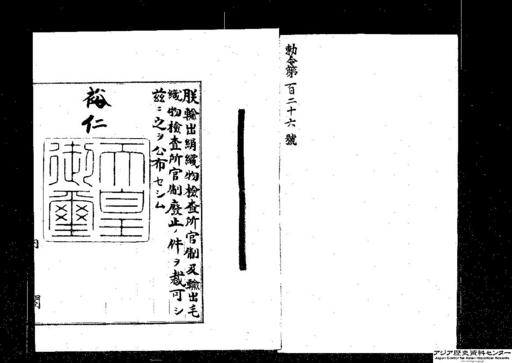 勅令第百二十六號
朕輸出絹織物檢查所官制及輸出毛
織物檢查所官制廢止ノ件ヲ裁可シ
茲ニ之ヲ公布セシム
裕仁
天皇
御璽
內
閣
アジア歴史資料センター
Japan Center for Asian Historical Records